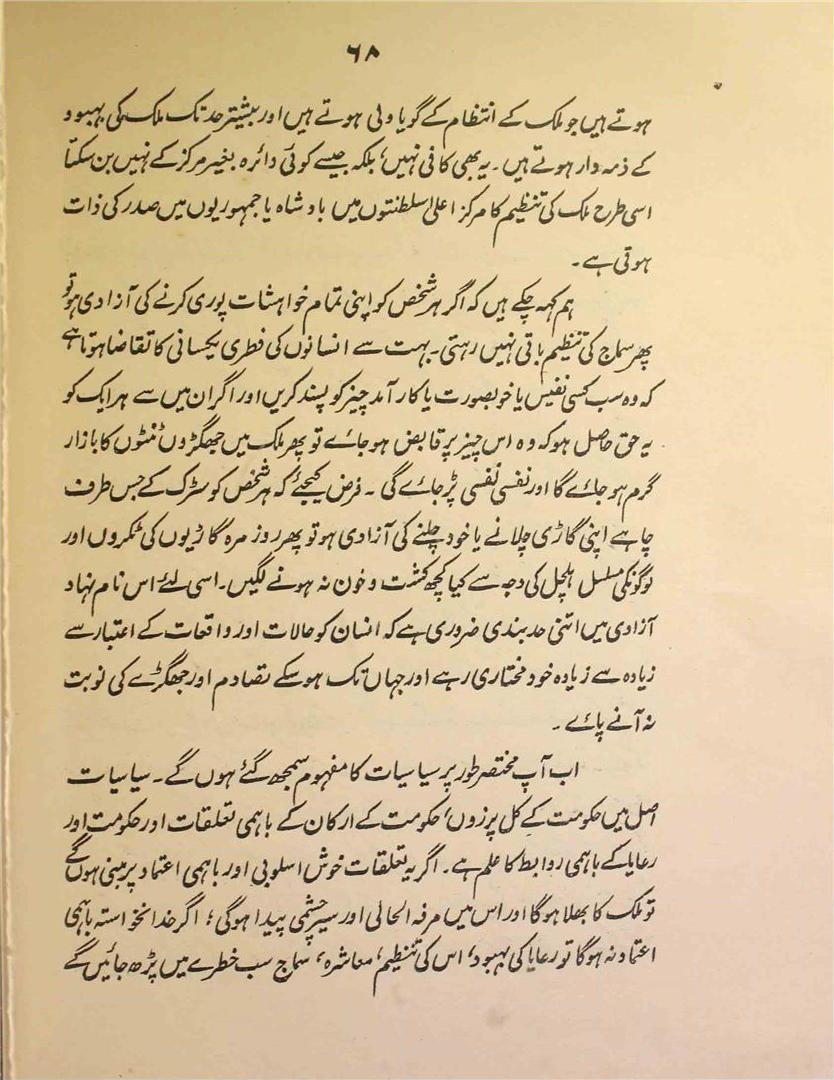 ۶۸
ہوتے ہیں جو ملک کے انتظام کے گویا ولی ہوتے ہیں اور بیشتر حد تک ملک کی بہبود
کے ذمہ دار ہوتے ہیں۔ یہ بھی کافی نہیں، بلکہ جیسے کوئی دائرہ بغیر مرکز کے نہیں بن سکتا
اسی طرح ملک کی تنظیم کا مرکز اعلیٰ سلطنتوں میں بادشاہ یا جمہوریوں میں صدر کی ذات
ہوتی ہے۔
ہم کہہ چکے ہیں کہ اگر ہر شخص کو اپنی تمام خواہشات پوری کرنے کی آزادی ہو تو
پھر سماج کی تنظیم باقی نہیں رہتی۔ بہت سے انسانوں کی فطری یکسانی کا تقاضا ہوتا ہے
کہ وہ سب کسی نفیس یا خوبصورت یا کار آمد چیز کو پسند کریں اور اگر ان میں سے ہر ایک کو
یہ حق حاصل ہو کہ وہ اس چیز پر قابض ہو جائے تو پھر ملک میں جھگڑوں ٹنٹوں کا بازار
گرم ہو جائے گا اور نفسی نفسی پڑ جائے گی۔ فرض کیجئے کہ ہر شخص کو سڑک کے جس طرف
چاہے اپنی گاڑی چلانے یا خود چلنے کی آزادی ہو تو پھر روز مرہ گاڑیوں کی ٹکروں اور
لوگونکی مسلسل ہلچل کی وجہ سے کیا کچھ کشت و خون نہ ہونے لگیں۔ اسی لئے اس نام نہاد
آزادی میں اتنی حد بندی ضروری ہے کہ انسان کو حالات اور واقعات کے اعتبار سے
زیادہ سے زیادہ خود مختاری رہے اور جہاں تک ہو سکے تصادم اور جھگڑے کی نوبت
نہ آنے پائے۔
اب آپ مختصر طور پر سیاسیات کا مفہوم سمجھ گئے ہوں گے۔ سیاسیات
اصل میں حکومت کے کل پرزوں، حکومت کے ارکان کے باہمی تعلقات اور حکومت اور
رعایا کے باہمی روابط کا علم ہے۔ اگر یہ تعلقات خوش اسلوبی اور باہمی اعتماد پر مبنی ہوں گے
تو ملک کا بھلا ہوگا اور اس میں مرفہ الحالی اور سیر چشمی پیدا ہوگی؛ اگر خدانخواستہ باہمی
اعتماد نہ ہوگا تو رعایا کی بہبود، اس کی تنظیم، معاشرہ، سماج سب خطرے میں پڑھ جائیں گے